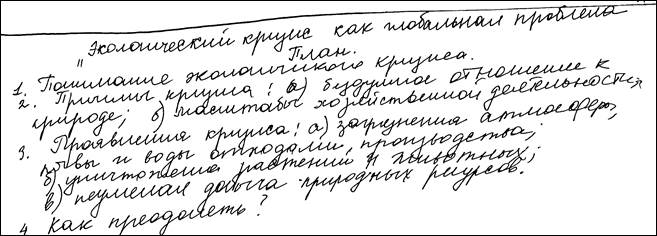 "Экологический кризис как глобальная проблема
План.
1. Понимание экологического кризиса.
2. Причины кризиса: а) бездумное отношение к
природе; б) масштабы хозяйственной деятельности;
3. Проявления кризиса: а) загрязнения атмосферы,
почвы и воды отходами производства;
б) уничтожение растений и животных;
в) неумелая добыча природных ресурсов.
4. Как преодолеть?